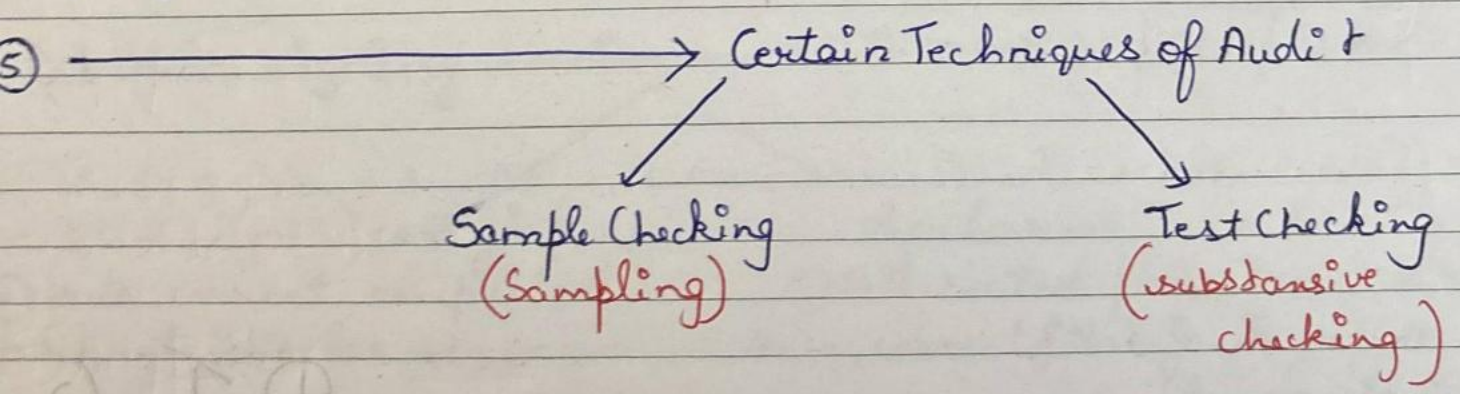 5 → Certain Techniques of Audit
Sample Checking
(Sampling)
Test Checking
(substansive
checking)